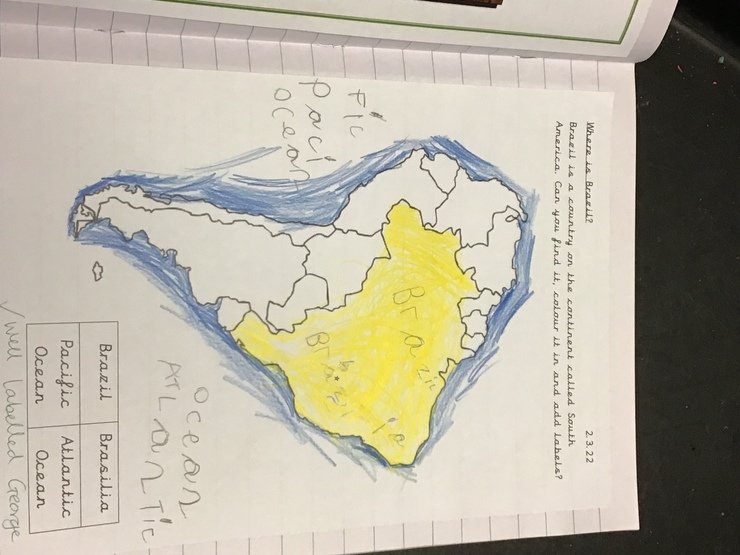 2.3.22
Where is Brazil?
Brazil is a country on the continent called South
America. Can you find it, colour it in and add labels?
Brazil
fic
paci
ocean
ocean
ATLanTic
Brazil Brasilia
Pacific Ocean Atlantic Ocean
✓ Well labelled George